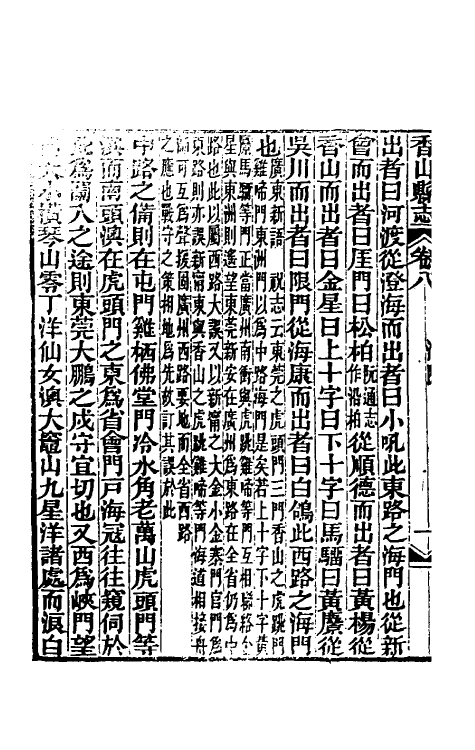 香山縣志 卷八 海防
出者曰河渡從澄海而出者曰小吼此東路之海門也從新
會而出者曰厓門曰松柏阮通志作沿柏從順德而出者曰黃楊從
香山而出者曰金星曰上十字曰下十字曰馬騮曰黃麖從
吳川而出者曰限門從海康而出者曰白鴿此西路之海門
也廣東新語 祝志云東莞之虎頭門三門香山之虎跳門
雞啼門東洲門以為中路海門是矣若上十字下十字黃
麖馬騮等門正當廣州南衝與虎跳雞啼等門互相聯絡金
星與東洲則遙望東莞新安在廣州為東路在全省仍為中
路也此以屬西路大誤又以新甯之大金小金寨門官門為
東路則亦誤新甯東與香山之虎跳雞啼等門海道相接舟
師可互為聲援固廣州西路要地而全省西路
之應也戰守之策相地為先故訂其誤於此
中路之備則在屯門雞栖佛堂門冷水角老萬山虎頭門等
澳而南頭澳在虎頭門之東為省會門戶海冦往往窺伺於
此為闌入之途則東莞大鵬之戍守宜切也又西為峽門望
門大小橫琴山零丁洋仙女澳大𥧌山九星洋諸處而浪白